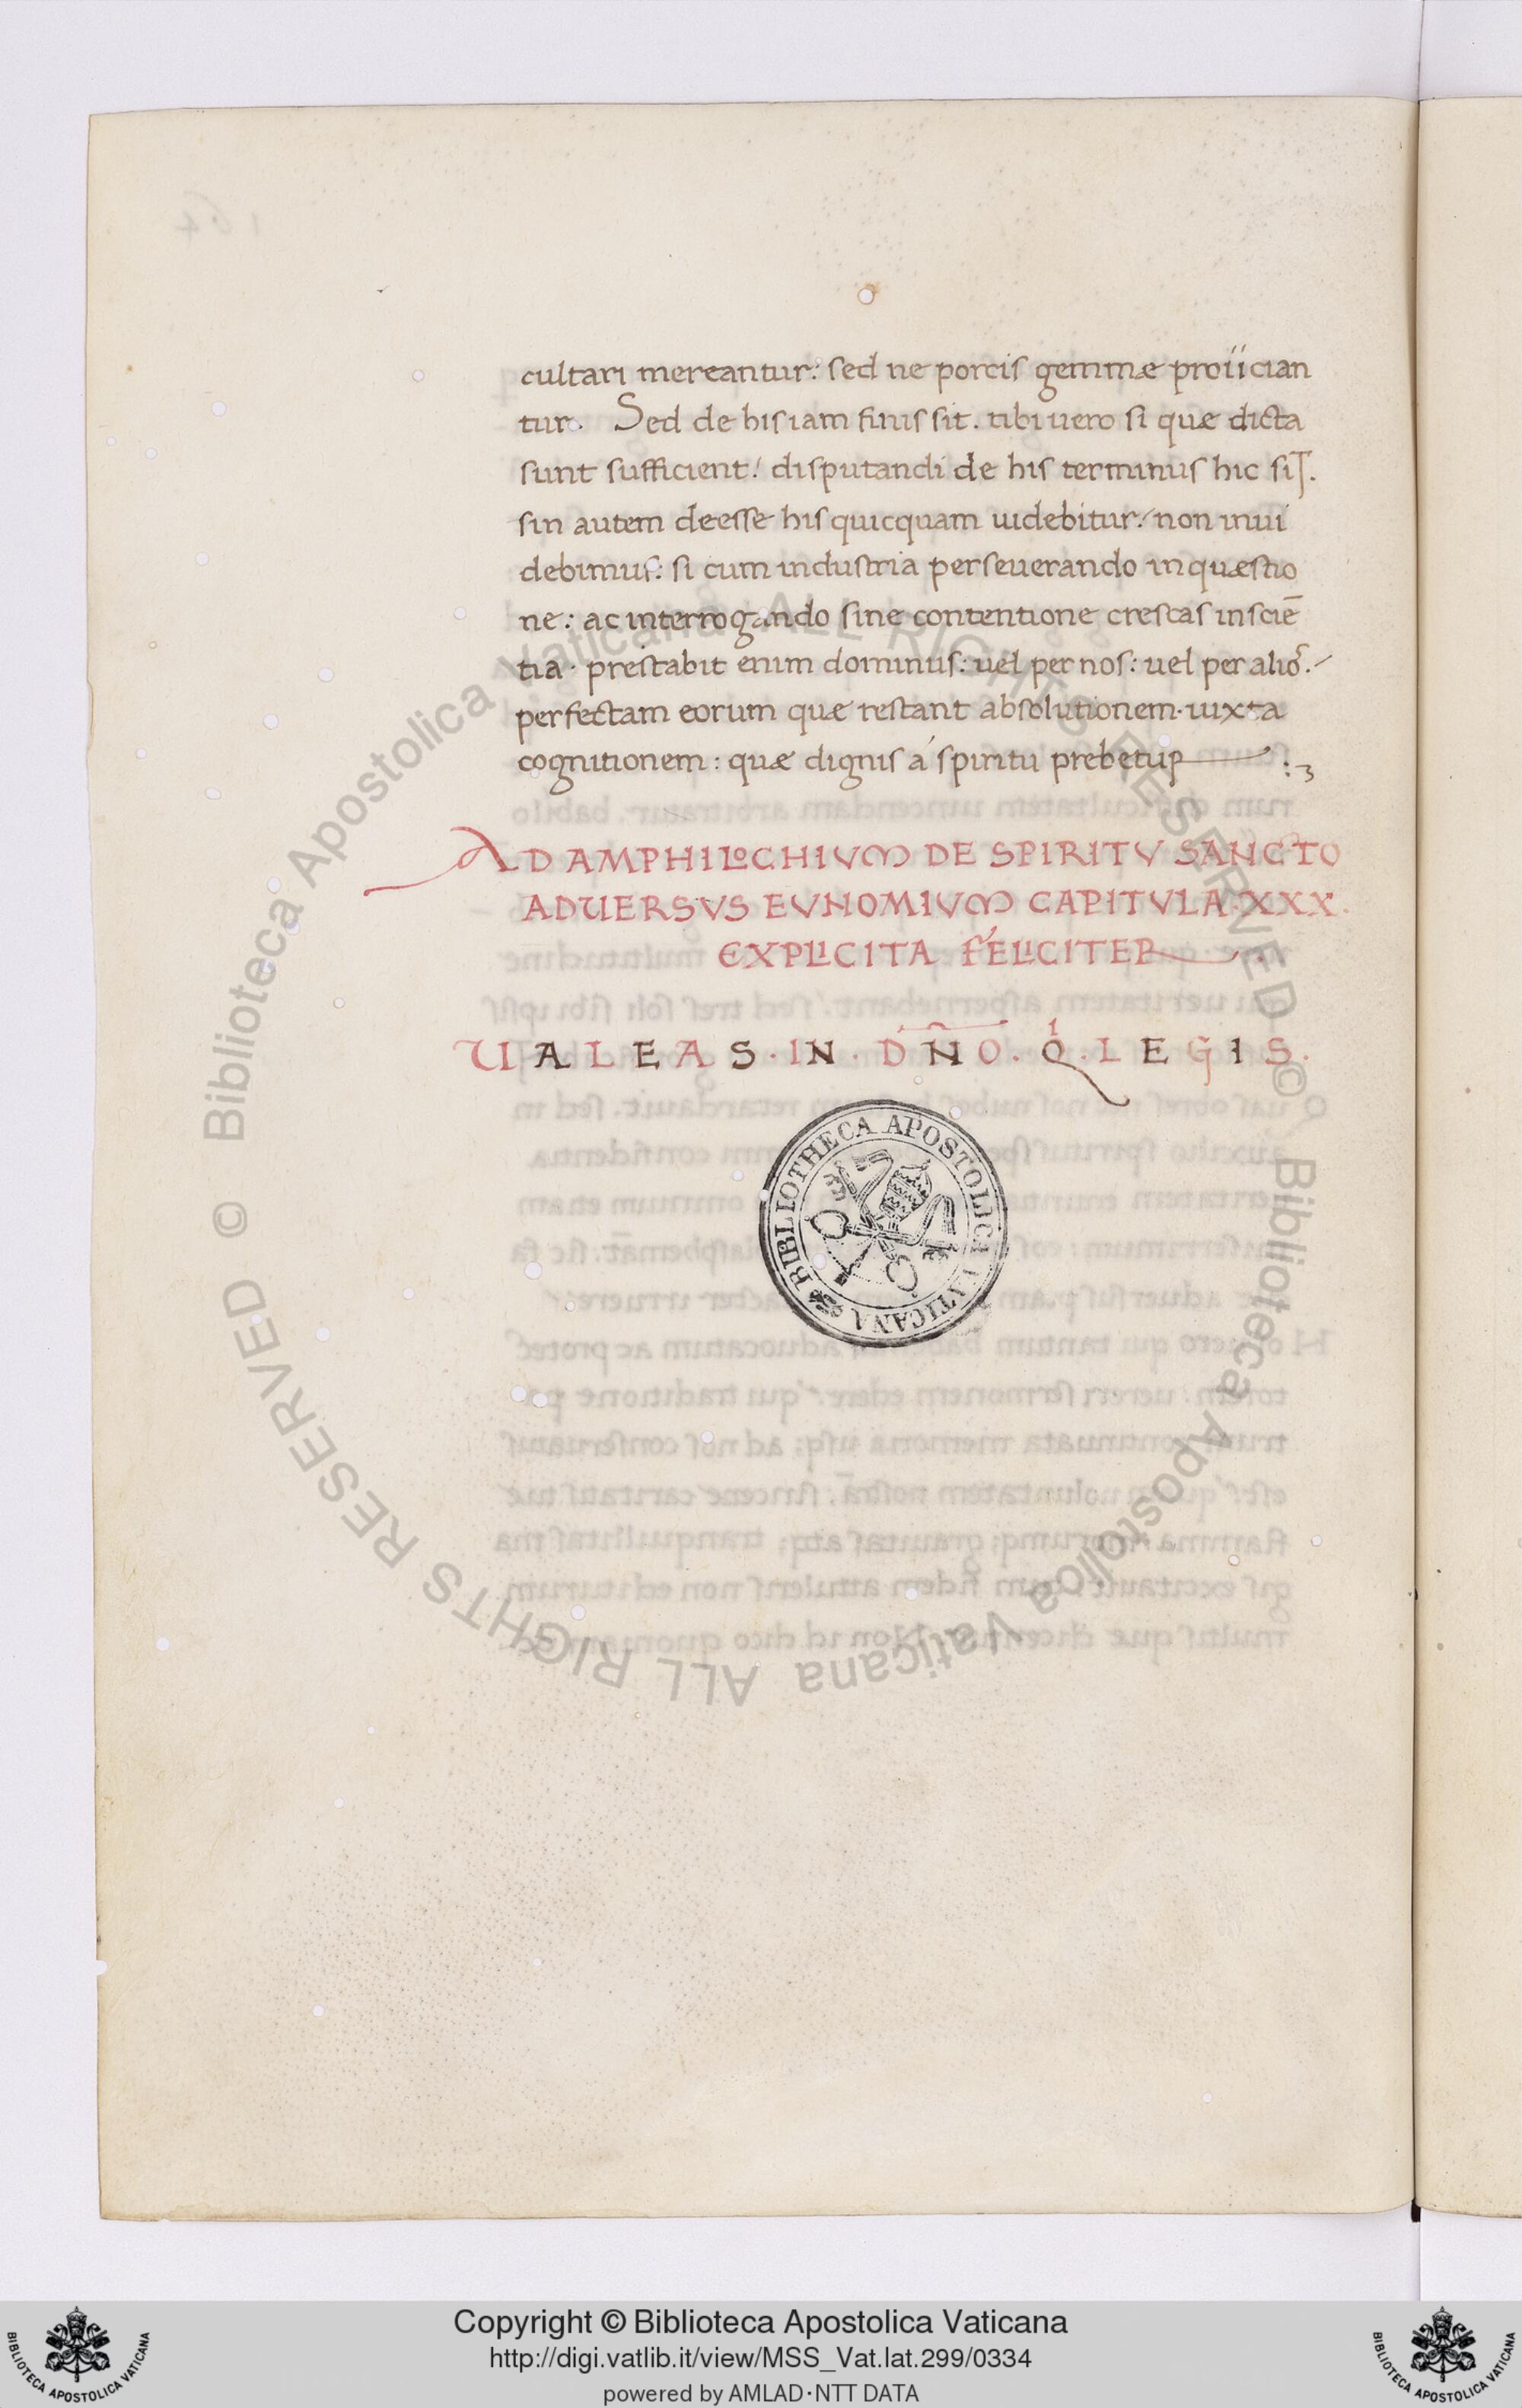 cultari mereantur: sed ne porcis gemmæ proiician
tur. Sed de his iam finis sit. tibi uero si quæ dicta
sunt sufficient! disputandi de his terminus hic sit.
sin autem deesse his quicquam uidebitur: non inui
debimus: si cum industria perseuerando in quæstio
ne: ac interrogando sine contentione crescas in sciē
tia. prestabit enim dominus: uel per nos: uel per alios.
perfectam eorum quæ restant absolutionem. iuxta
cognitionem: quæ dignis á spiritu prebetur :3
AD AMPHILOCHIVM DE SPIRITV SANCTO
ADUERSVS EVNOMIVM CAPITVLA. XXX.
EXPLICITA FELICITER
UALEAS. IN. DN̄O. Qⁱ. LEGIS.
BIBLIOTHECA APOSTOLICA VATICANA
© Biblioteca Apostolica Vaticana ALL RIGHTS RESERVED
© Biblioteca Apostolica Vaticana ALL RIGHTS RESERVED
Copyright © Biblioteca Apostolica Vaticana
http://digi.vatlib.it/view/MSS_Vat.lat.299/0334
powered by AMLAD·NTT DATA
BIBLIOTECA APOSTOLICA VATICANA
BIBLIOTECA APOSTOLICA VATICANA